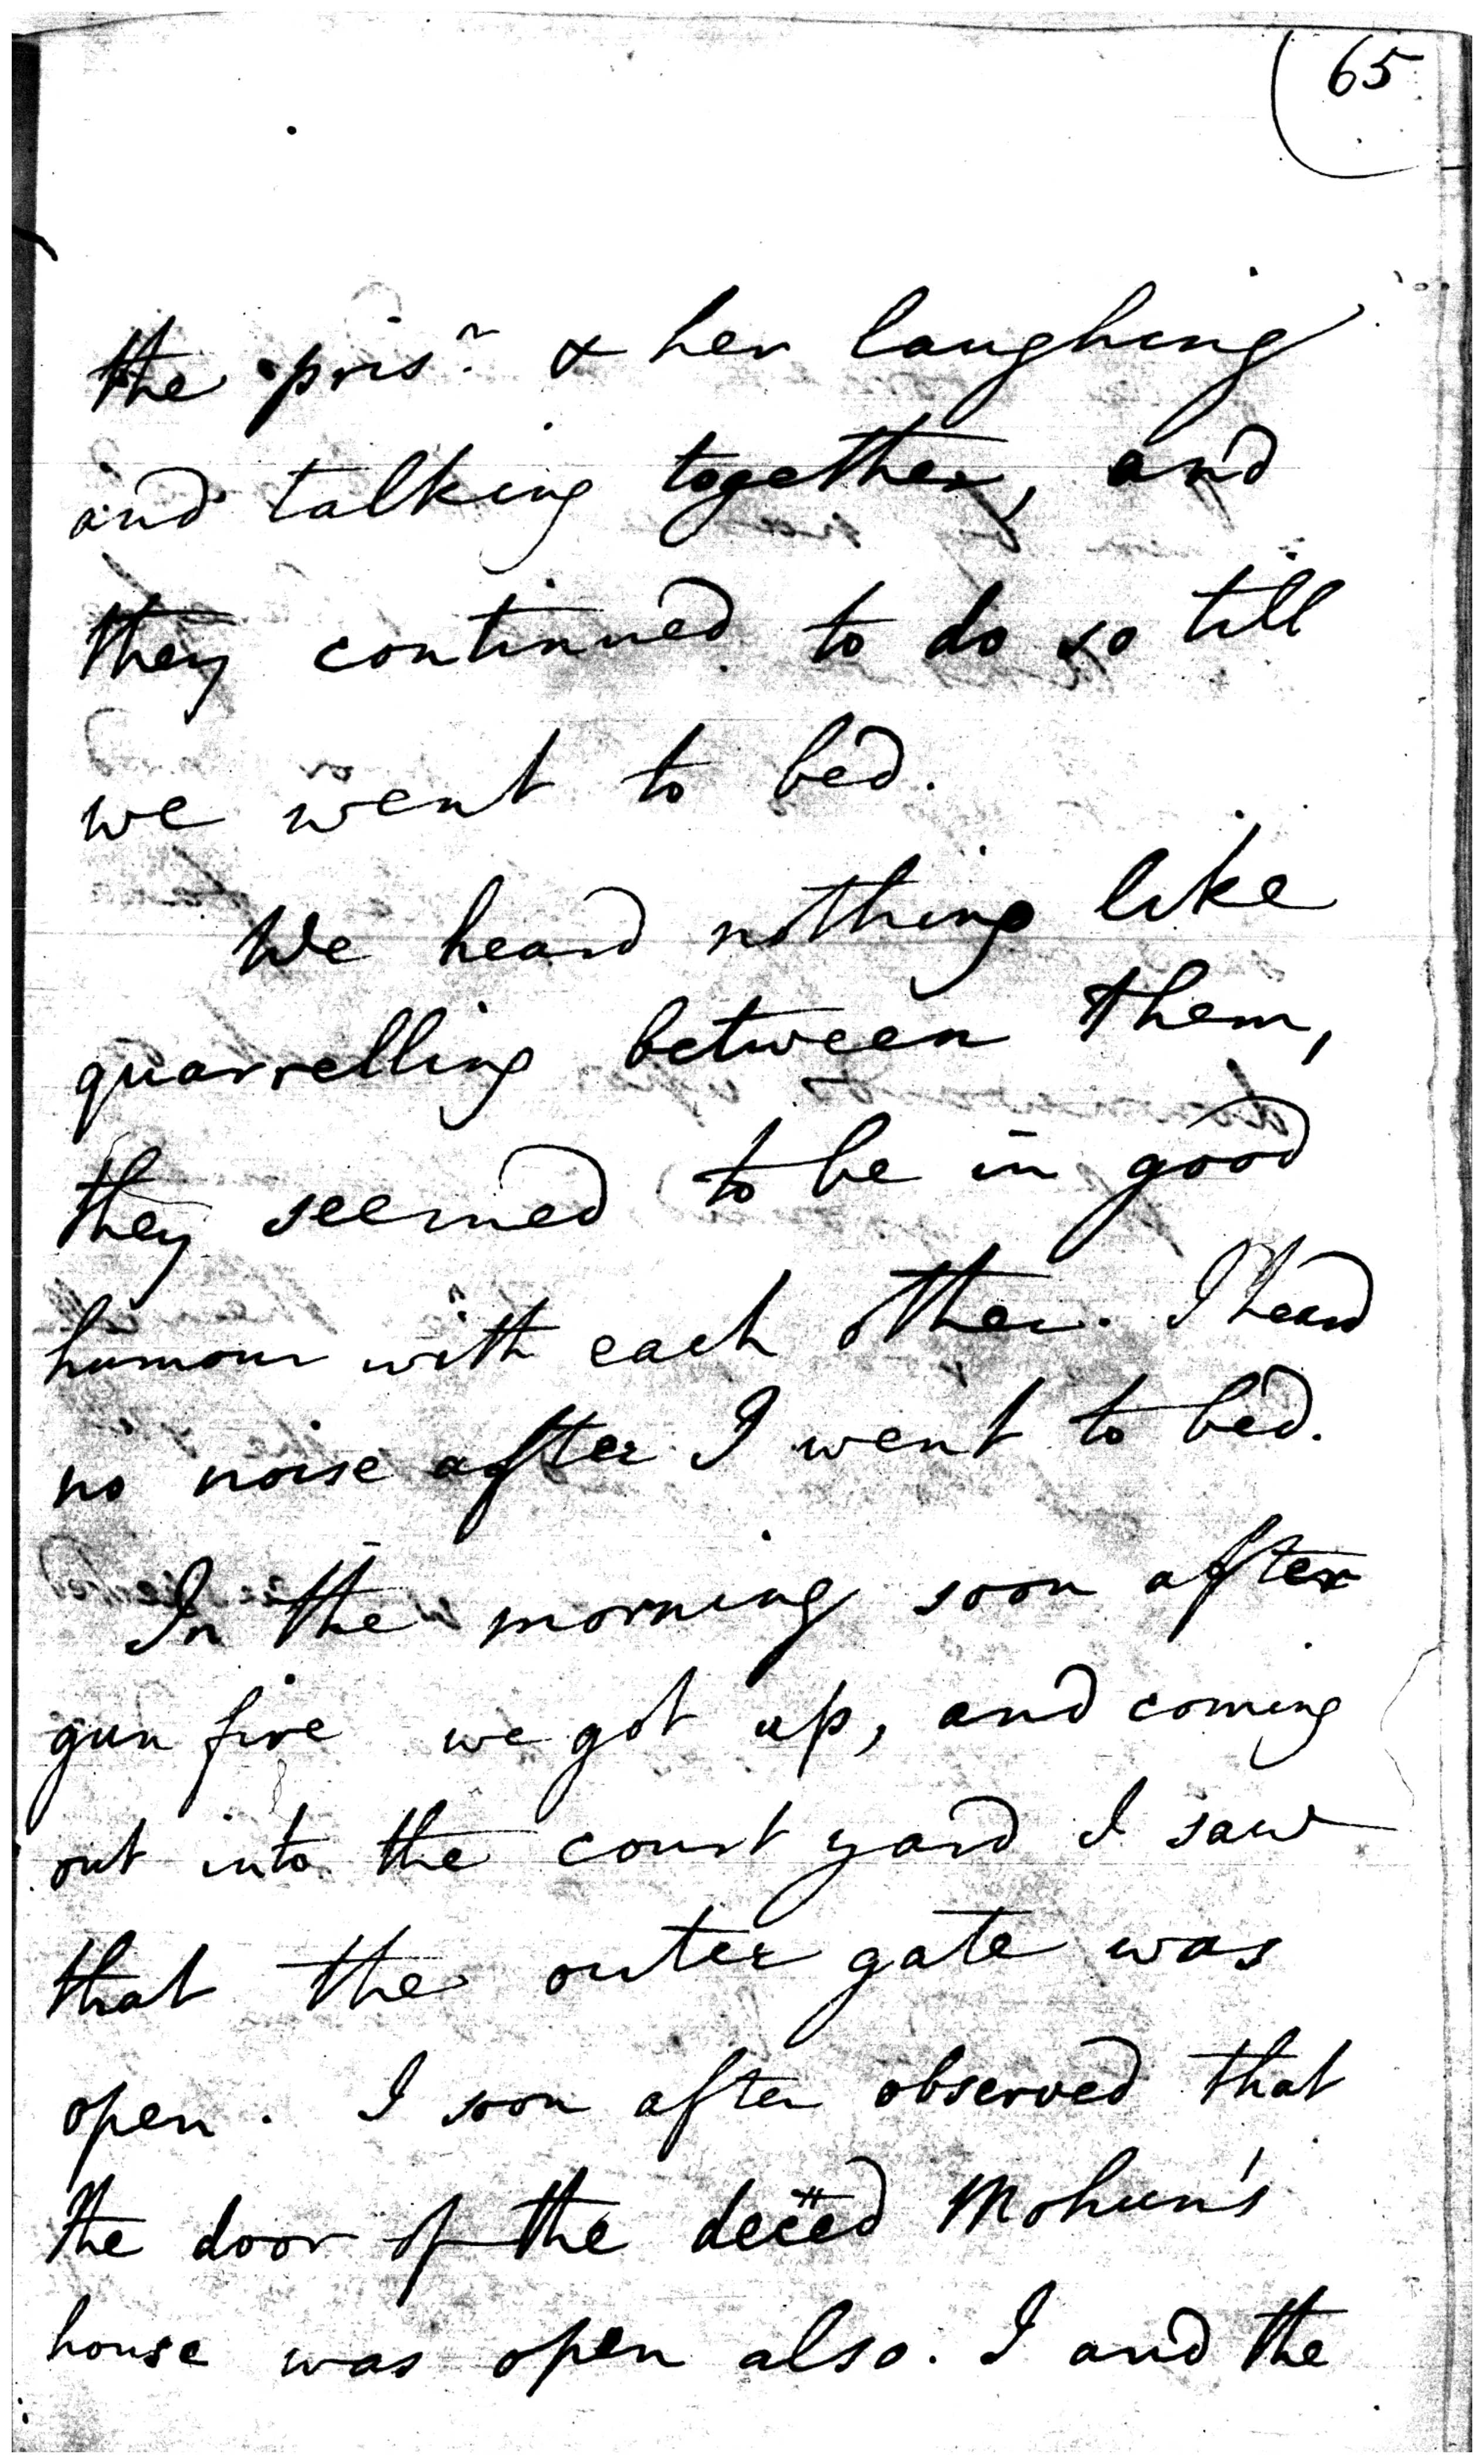 65
the pris.r & her laughing
and talking together, and
they continued to do so till
we went to bed.
We heard nothing like
quarrelling between them,
they seemed to be in good
humour with each other. I heard
no noise after I went to bed.
In the morning soon after
gun fire we got up, and coming
out into the court yard I saw
that the outer gate was
open. I soon after observed that
the door of the deced Mohun's
house was open also. I and the